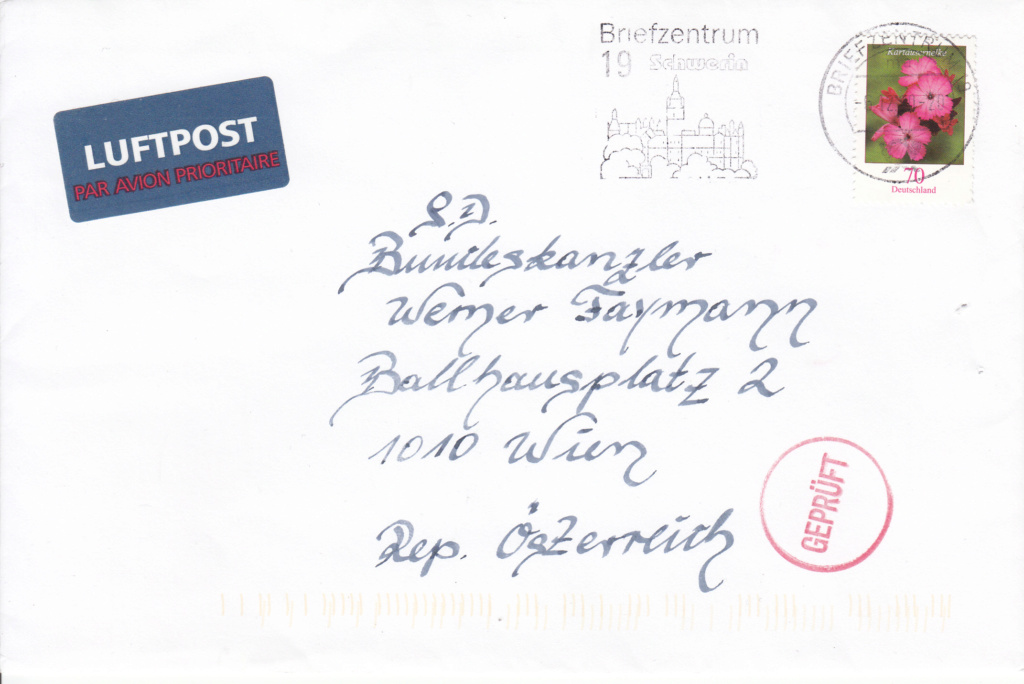 LUFTPOST
PAR AVION PRIORITAIRE
Briefzentrum
19 Schwerin
BRIEFZENTRUM
Kartäusernelke
70
Deutschland
S.D.
Bundeskanzler
Werner Faymann
Ballhausplatz 2
1010 Wien
Rep. Öszerreich
GEPRÜFT